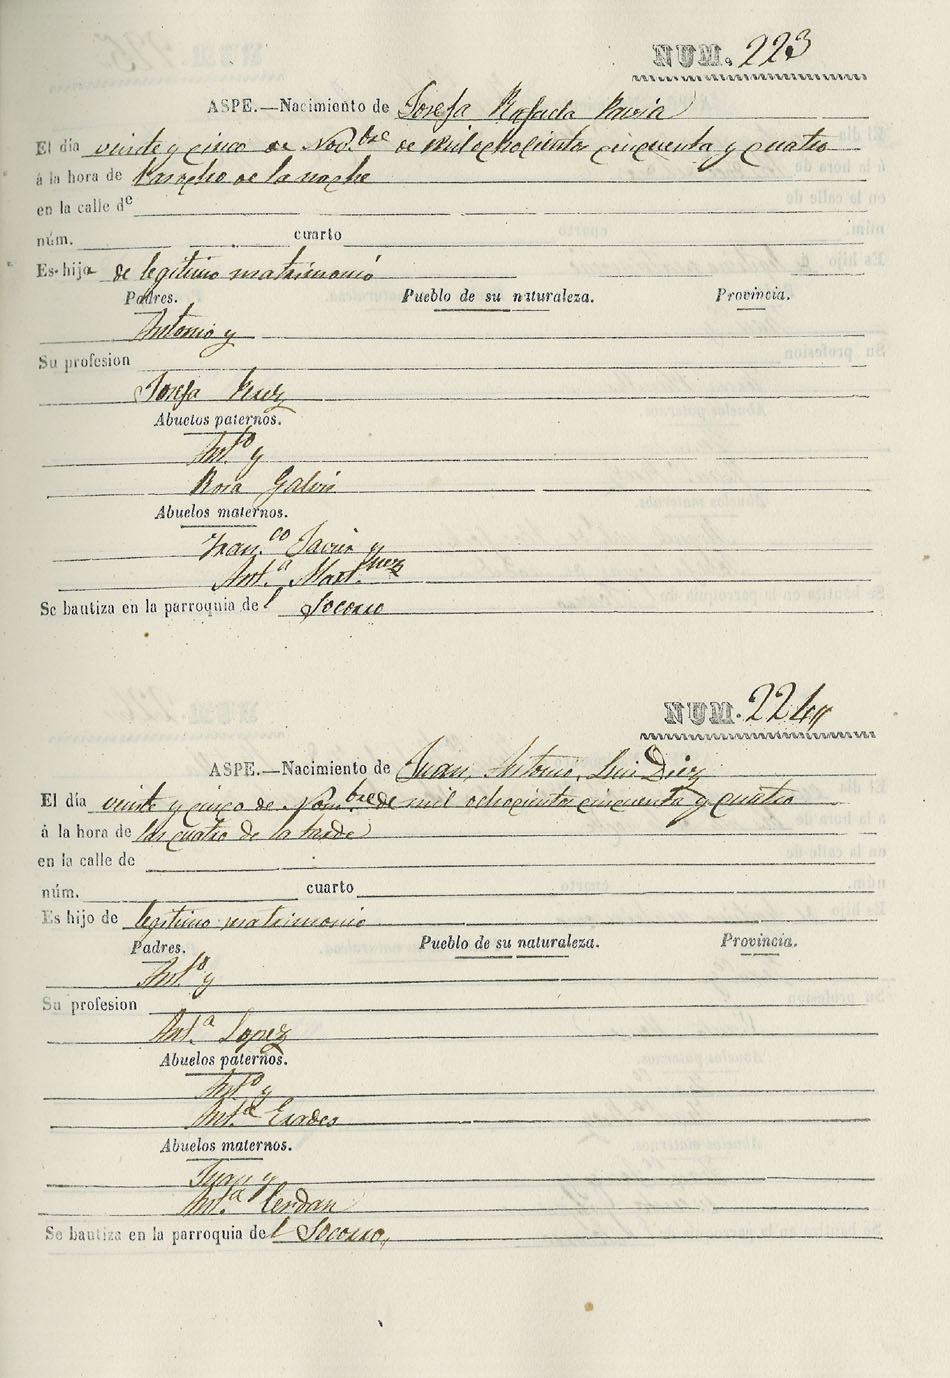 NUM. 223
ASPE.—Nacimiento de Josefa Rafaela Pavia
El día veinte y cinco de Nov.bre de mil ochocientos cincuenta y cuatro
á la hora de las ocho de la noche
en la calle de
núm. cuarto
Es hija de legitimo matrimonio
Padres. Pueblo de su naturaleza. Provincia.
Antonio y
Su profesion
Josefa
Abuelos paternos.
Ant.o y
Rosa Galvis
Abuelos maternos.
Fran.co y
Ant.a Mart.nez
Se bautiza en la parroquia del Socorro
NUM. 224
ASPE.—Nacimiento de Juan Antonio Luis Diez
El día veinte y cinco de Nom.bre de mil ochocientos cincuenta y cuatro
á la hora de las cuatro de la tarde
en la calle de
núm. cuarto
Es hijo de legitimo matrimonio
Padres. Pueblo de su naturaleza. Provincia.
Ant.o y
Su profesion
Ant.a Lopez
Abuelos paternos.
Ant.o y
Ant.a
Abuelos maternos.
Juan y
Ant.a Cerdan
Se bautiza en la parroquia del Socorro